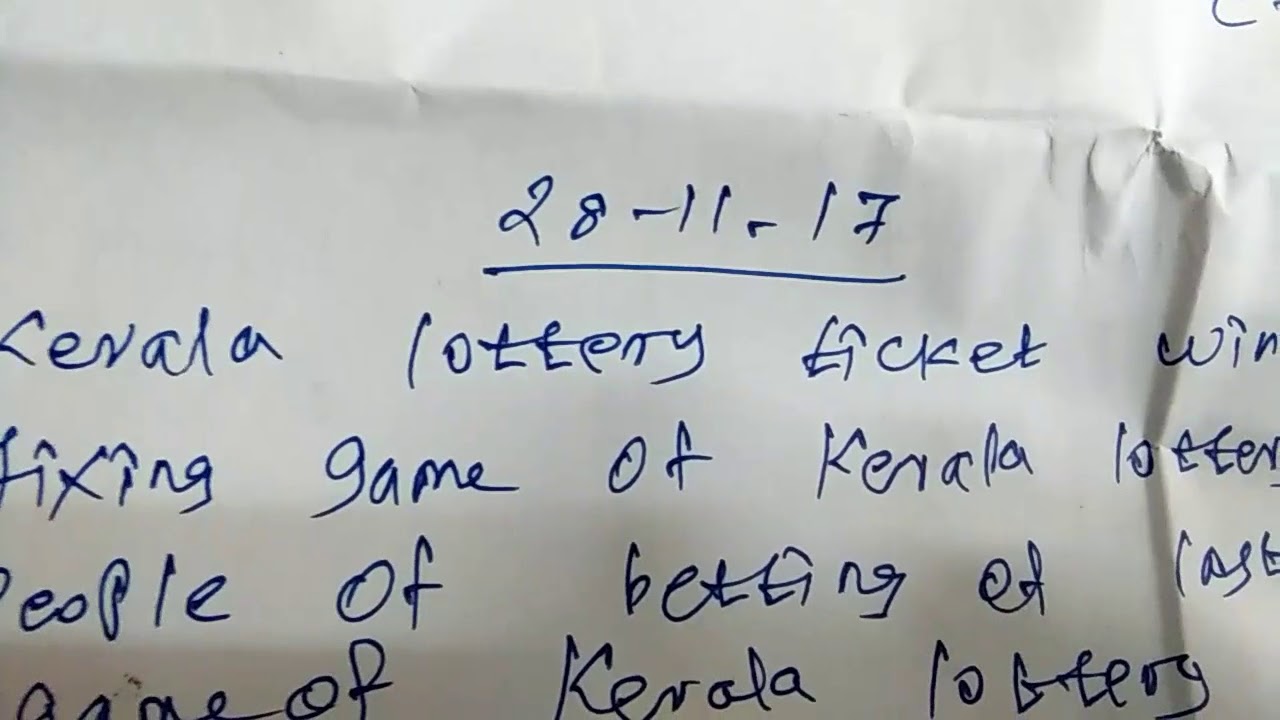 28-11-17
Kerala lottery ticket win
fixing game of Kerala lotter
People of betting of last
game of Kerala lottery